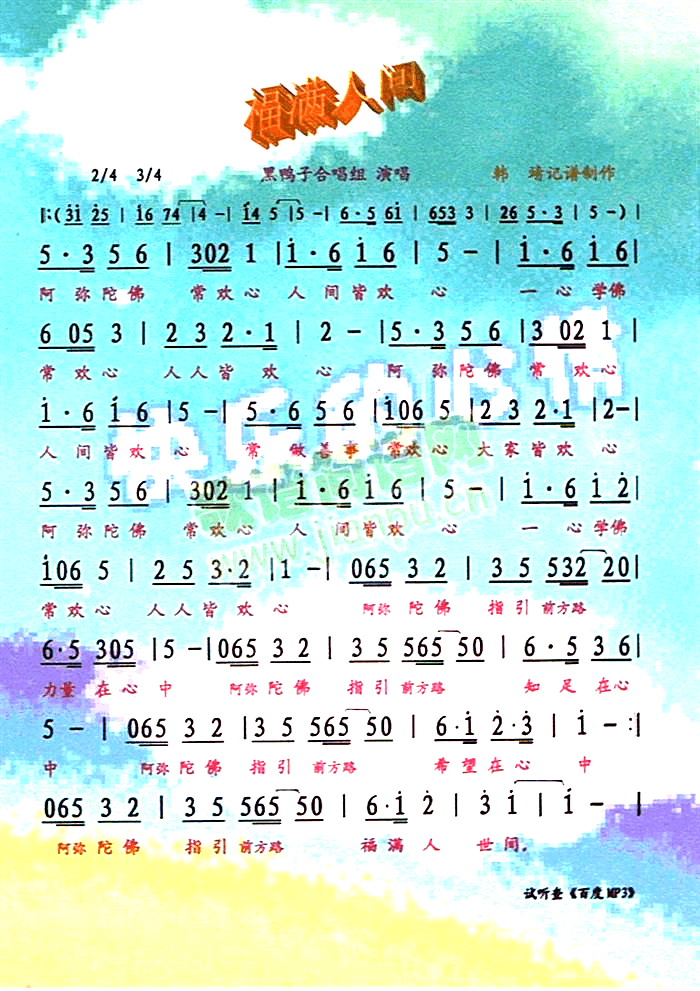 福满人间
2/4 3/4 黑鸭子合唱组 演唱 韩 靖记谱制作
|:(3̇1̇ 2̇5 | 1̇6 74 |4 -| 1̇4 5 |5 -| 6·5 61̇ | 653 3 | 26 5·3 | 5 -)|
5·3 5 6 | 302 1 |1̇·6 1̇ 6 | 5 - | 1̇·6 1̇ 6|
阿弥陀佛 常欢心 人间皆欢 心 一心学佛
6 05 3 | 2 3 2·1 | 2 - |5·3 5 6 |3 02 1 |
常欢心 人人皆欢 心 阿弥陀佛 常欢心
1̇·6 1̇ 6 |5 -| 5·6 5 6 |1̇06 5 |2 3 2·1 |2-|
人间皆欢 心 常做善事 常欢心 大家皆欢 心
5·3 5 6 | 302 1 | 1̇·6 1̇ 6 | 5 - | 1̇·6 1̇ 2̇|
阿弥陀佛 常欢心 人间皆欢 心 一心学佛
1̇06 5 | 2 5 3·2 |1 -| 065 3 2 | 3 5 532 20|
常欢心 人人皆欢心 阿弥陀佛 指引前方路
6·5 305 |5 -|065 3 2 |3 5 565 50| 6·5 3 6|
力量在心中 阿弥陀佛 指引前方路 知足在心
5 - | 065 3 2 |3 5 565 50| 6·1̇ 2̇·3̇ | 1̇ - :|
中 阿弥陀佛 指引前方路 希望在心 中
065 3 2 | 3 5 565 50 | 6·1̇ 2̇ | 3̇ 1̇ | 1̇ - |
阿弥陀佛 指引前方路 福满人 世间。
歌谱简谱网
www.jianpu.cn
试听查《百度MP3》